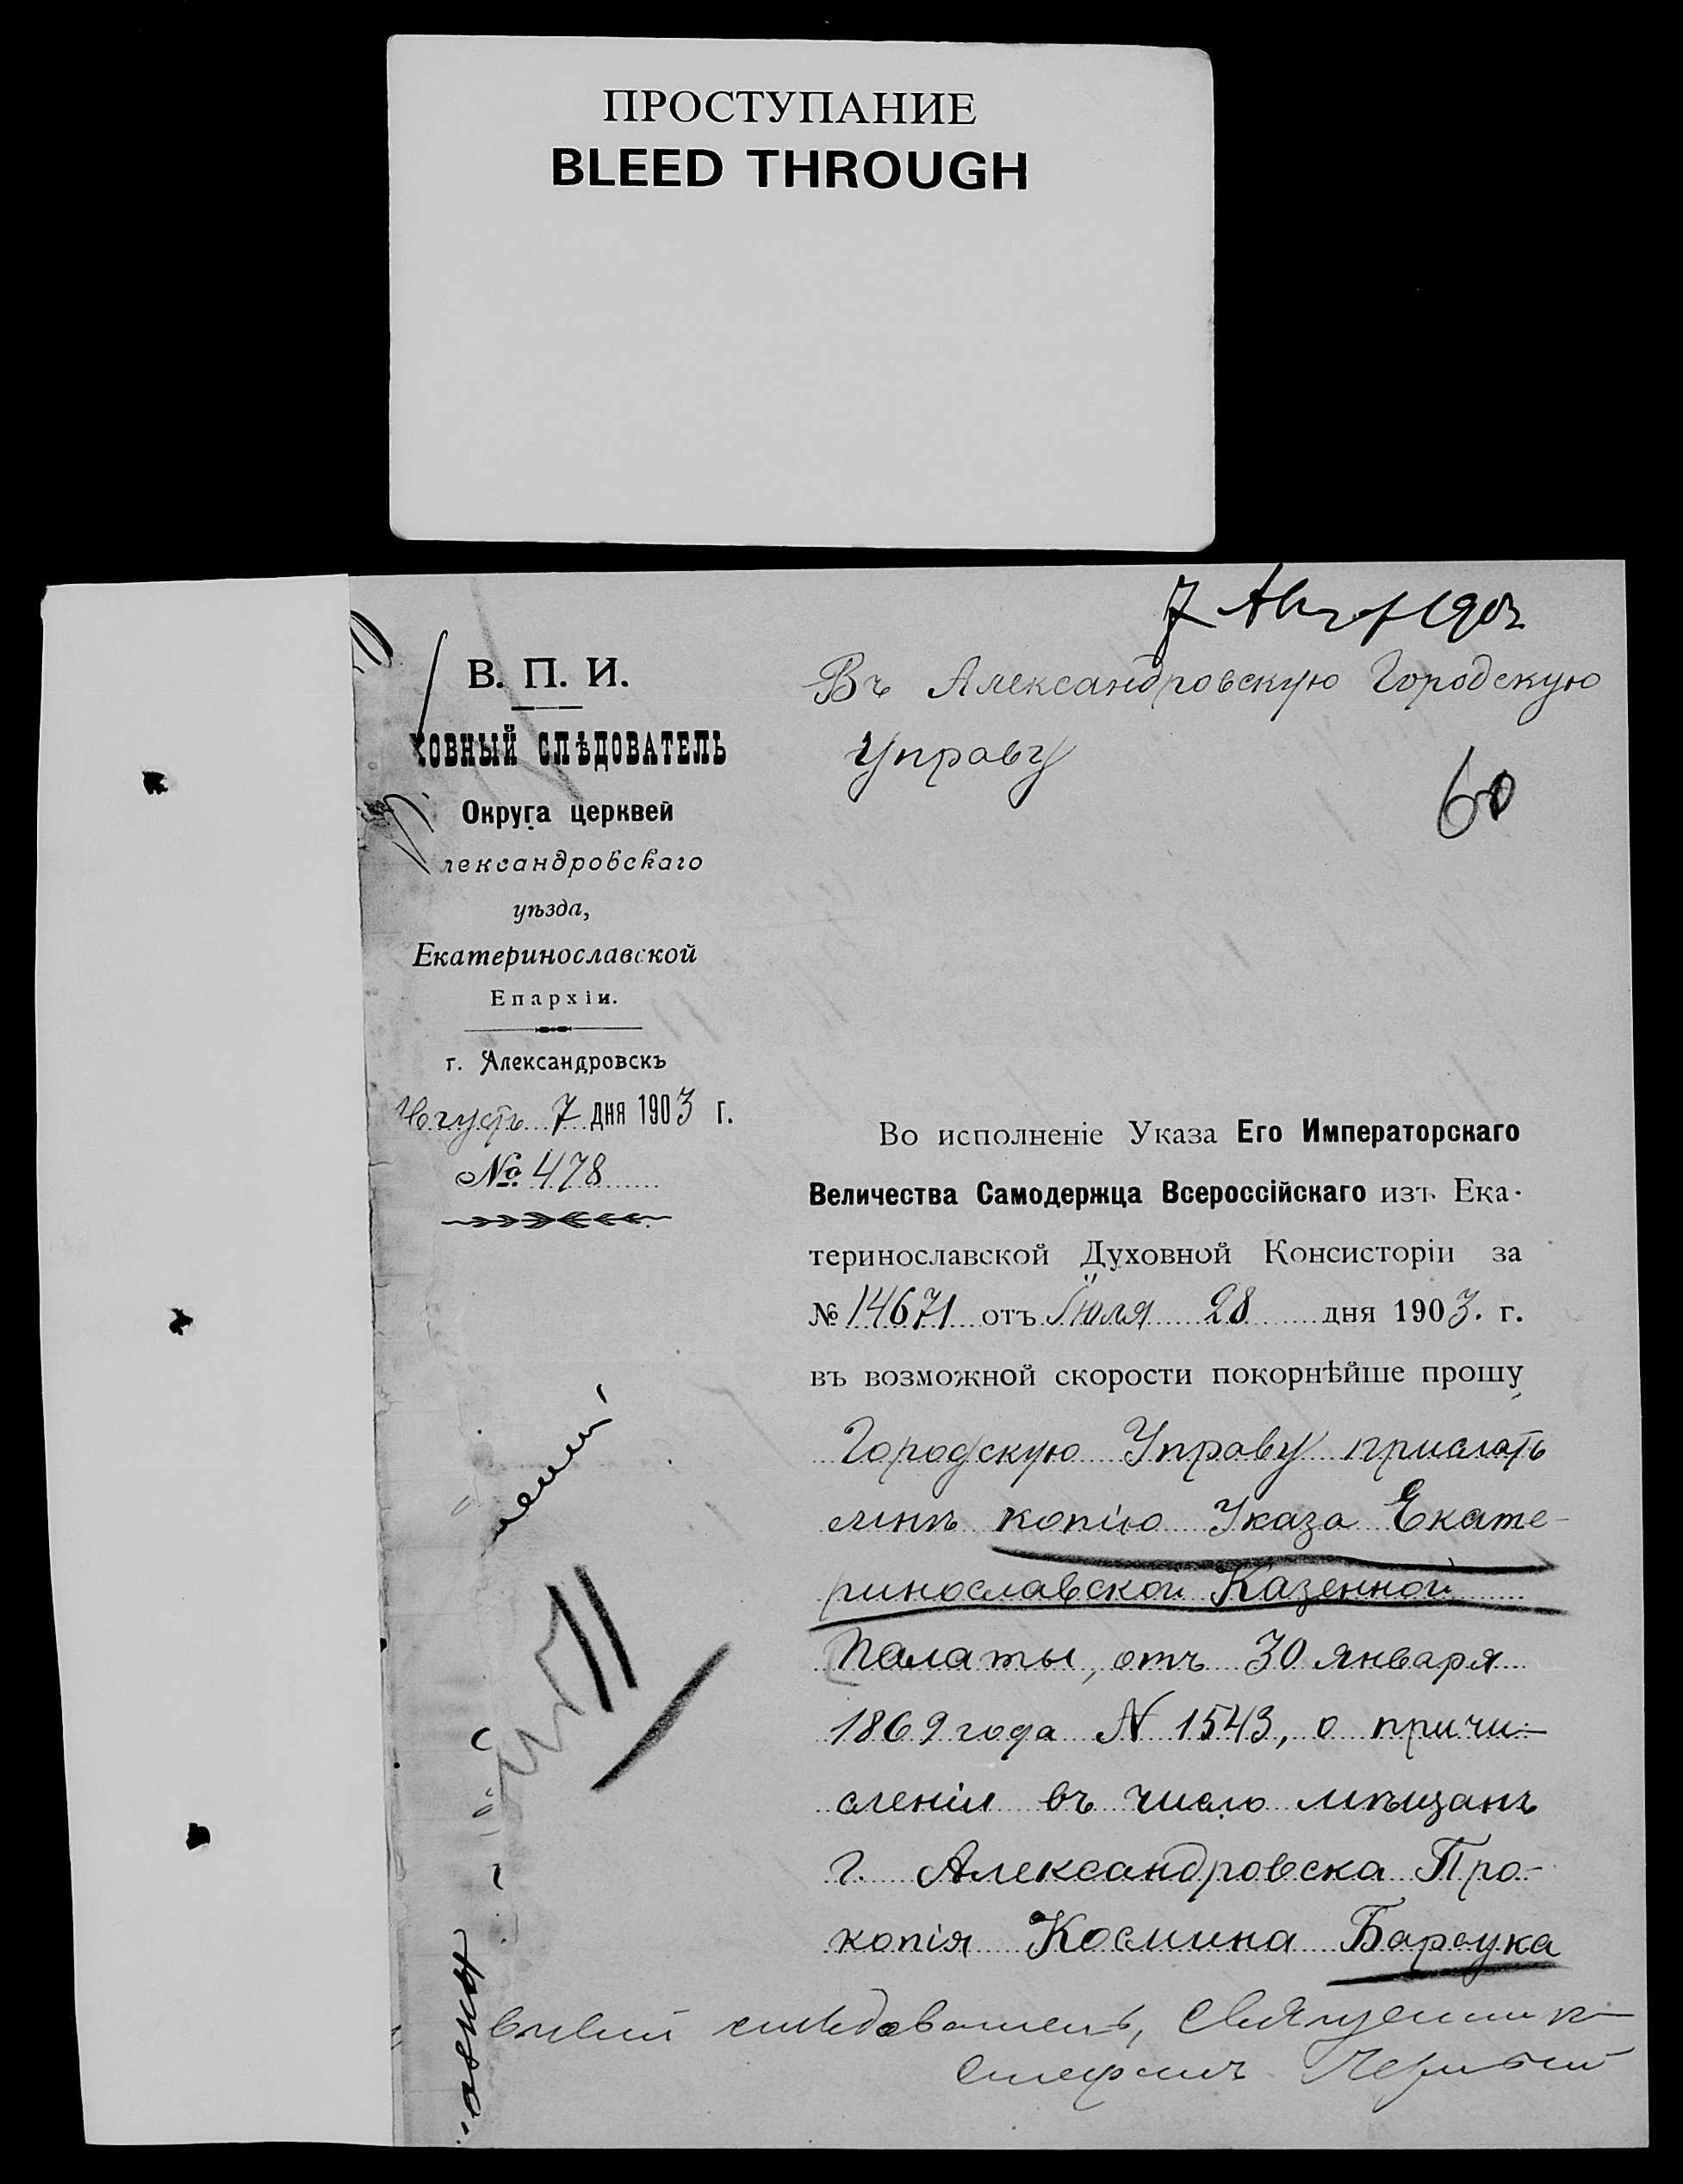 ПРОСТУПАНИЕ
BLEED THROUGH
7 Авг 1903
В. П. И.
ХОВНЫЙ СЛѢДОВАТЕЛЬ
Округа церквей
лександровскаго
уѣзда,
Екатеринославской
Епархіи.
г. Александровскъ
Августъ 7 дня 1903 г.
№ 478
Въ Александровскую Городскую
Управу
60
Во исполненіе Указа Его Императорскаго
Величества Самодержца Всероссійскаго изъ Ека-
теринославской Духовной Консисторіи за
№ 14671 отъ Іюля 28 дня 1903. г.
въ возможной скорости покорнѣйше прошу
Городскую Управу прислать
мнѣ копію Указа Екате-
ринославской Казенной
Палаты, отъ 30 января
1869 года N 1543, о причи-
сленіи въ число мѣщанъ
г. Александровска Про-
копія Космина Барсука
слѣдователь, Священникъ
Стефанъ